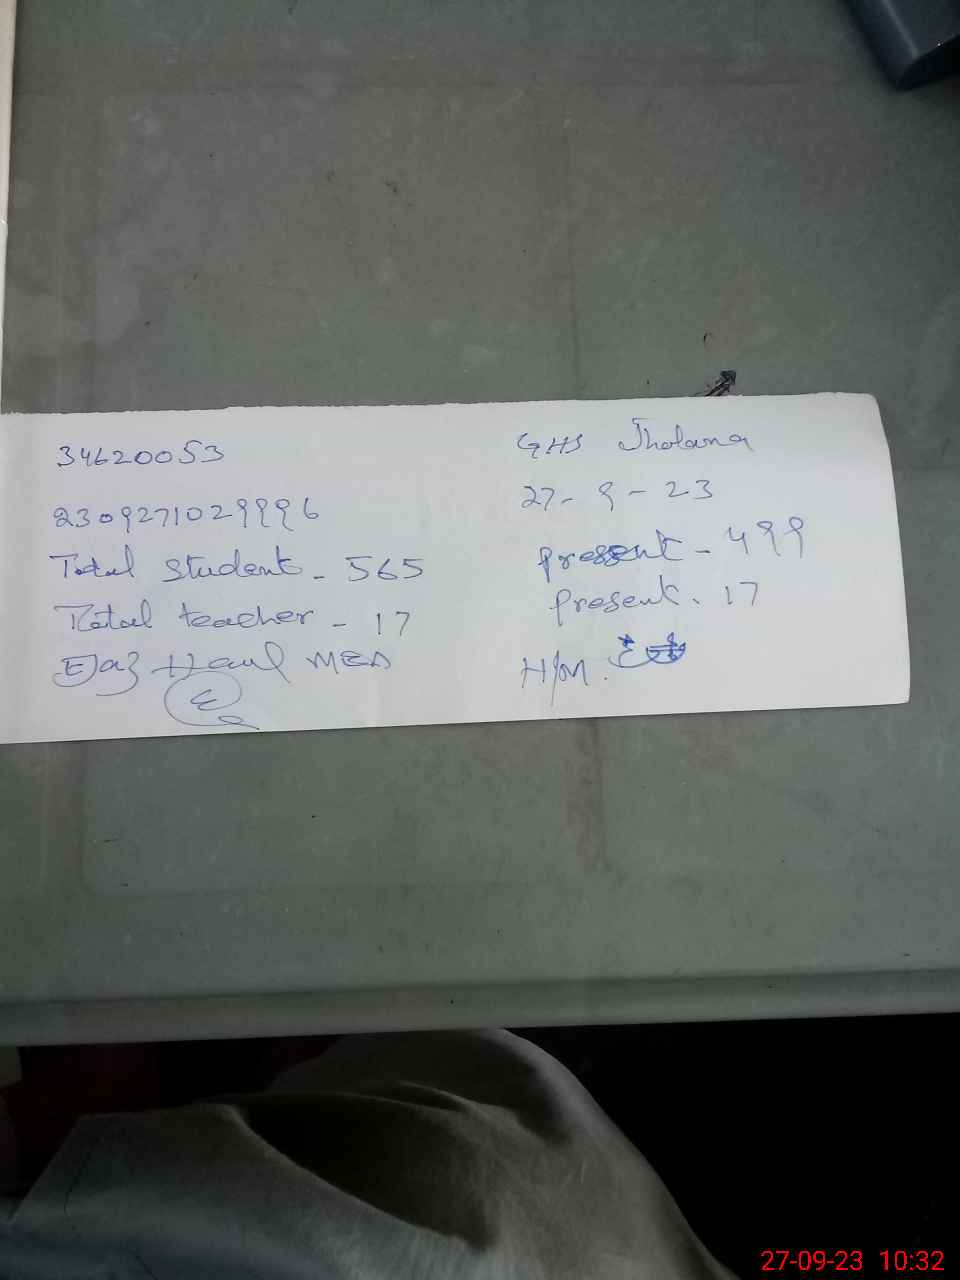 34620053
GHS Jholana
230927102999 6
27-9-23
Total student - 565
present - 499
Total teacher - 17
present. 17
Ejaz MEA
H/M.
27-09-23 10:32